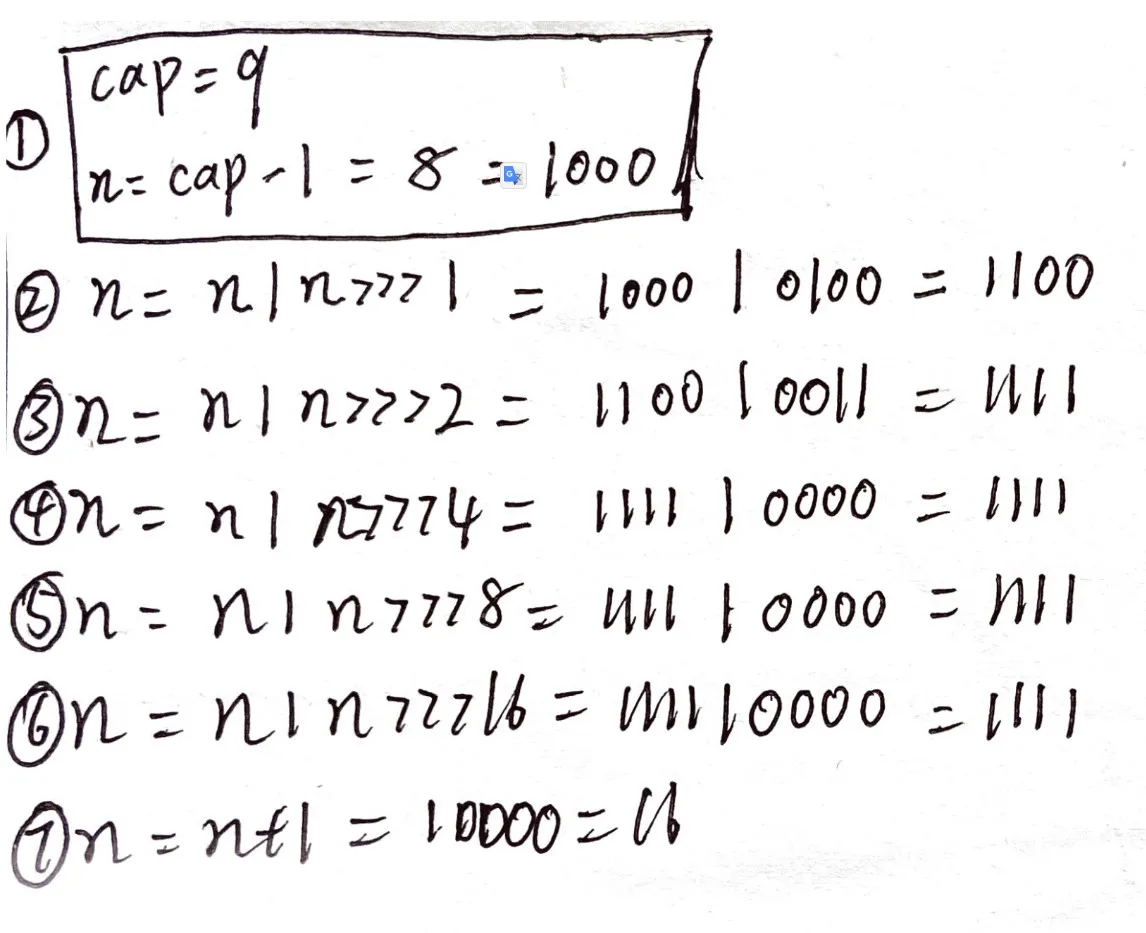 ① cap = 9
n = cap - 1 = 8 = 1000
② n = n | n >>> 1 = 1000 | 0100 = 1100
③ n = n | n >>> 2 = 1100 | 0011 = 1111
④ n = n | n >>> 4 = 1111 | 0000 = 1111
⑤ n = n | n >>> 8 = 1111 | 0000 = 1111
⑥ n = n | n >>> 16 = 1111 | 0000 = 1111
⑦ n = n + 1 = 10000 = 16